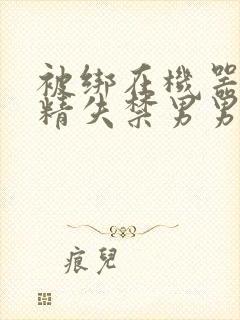 被绑在機器
精失禁男男
痕兒